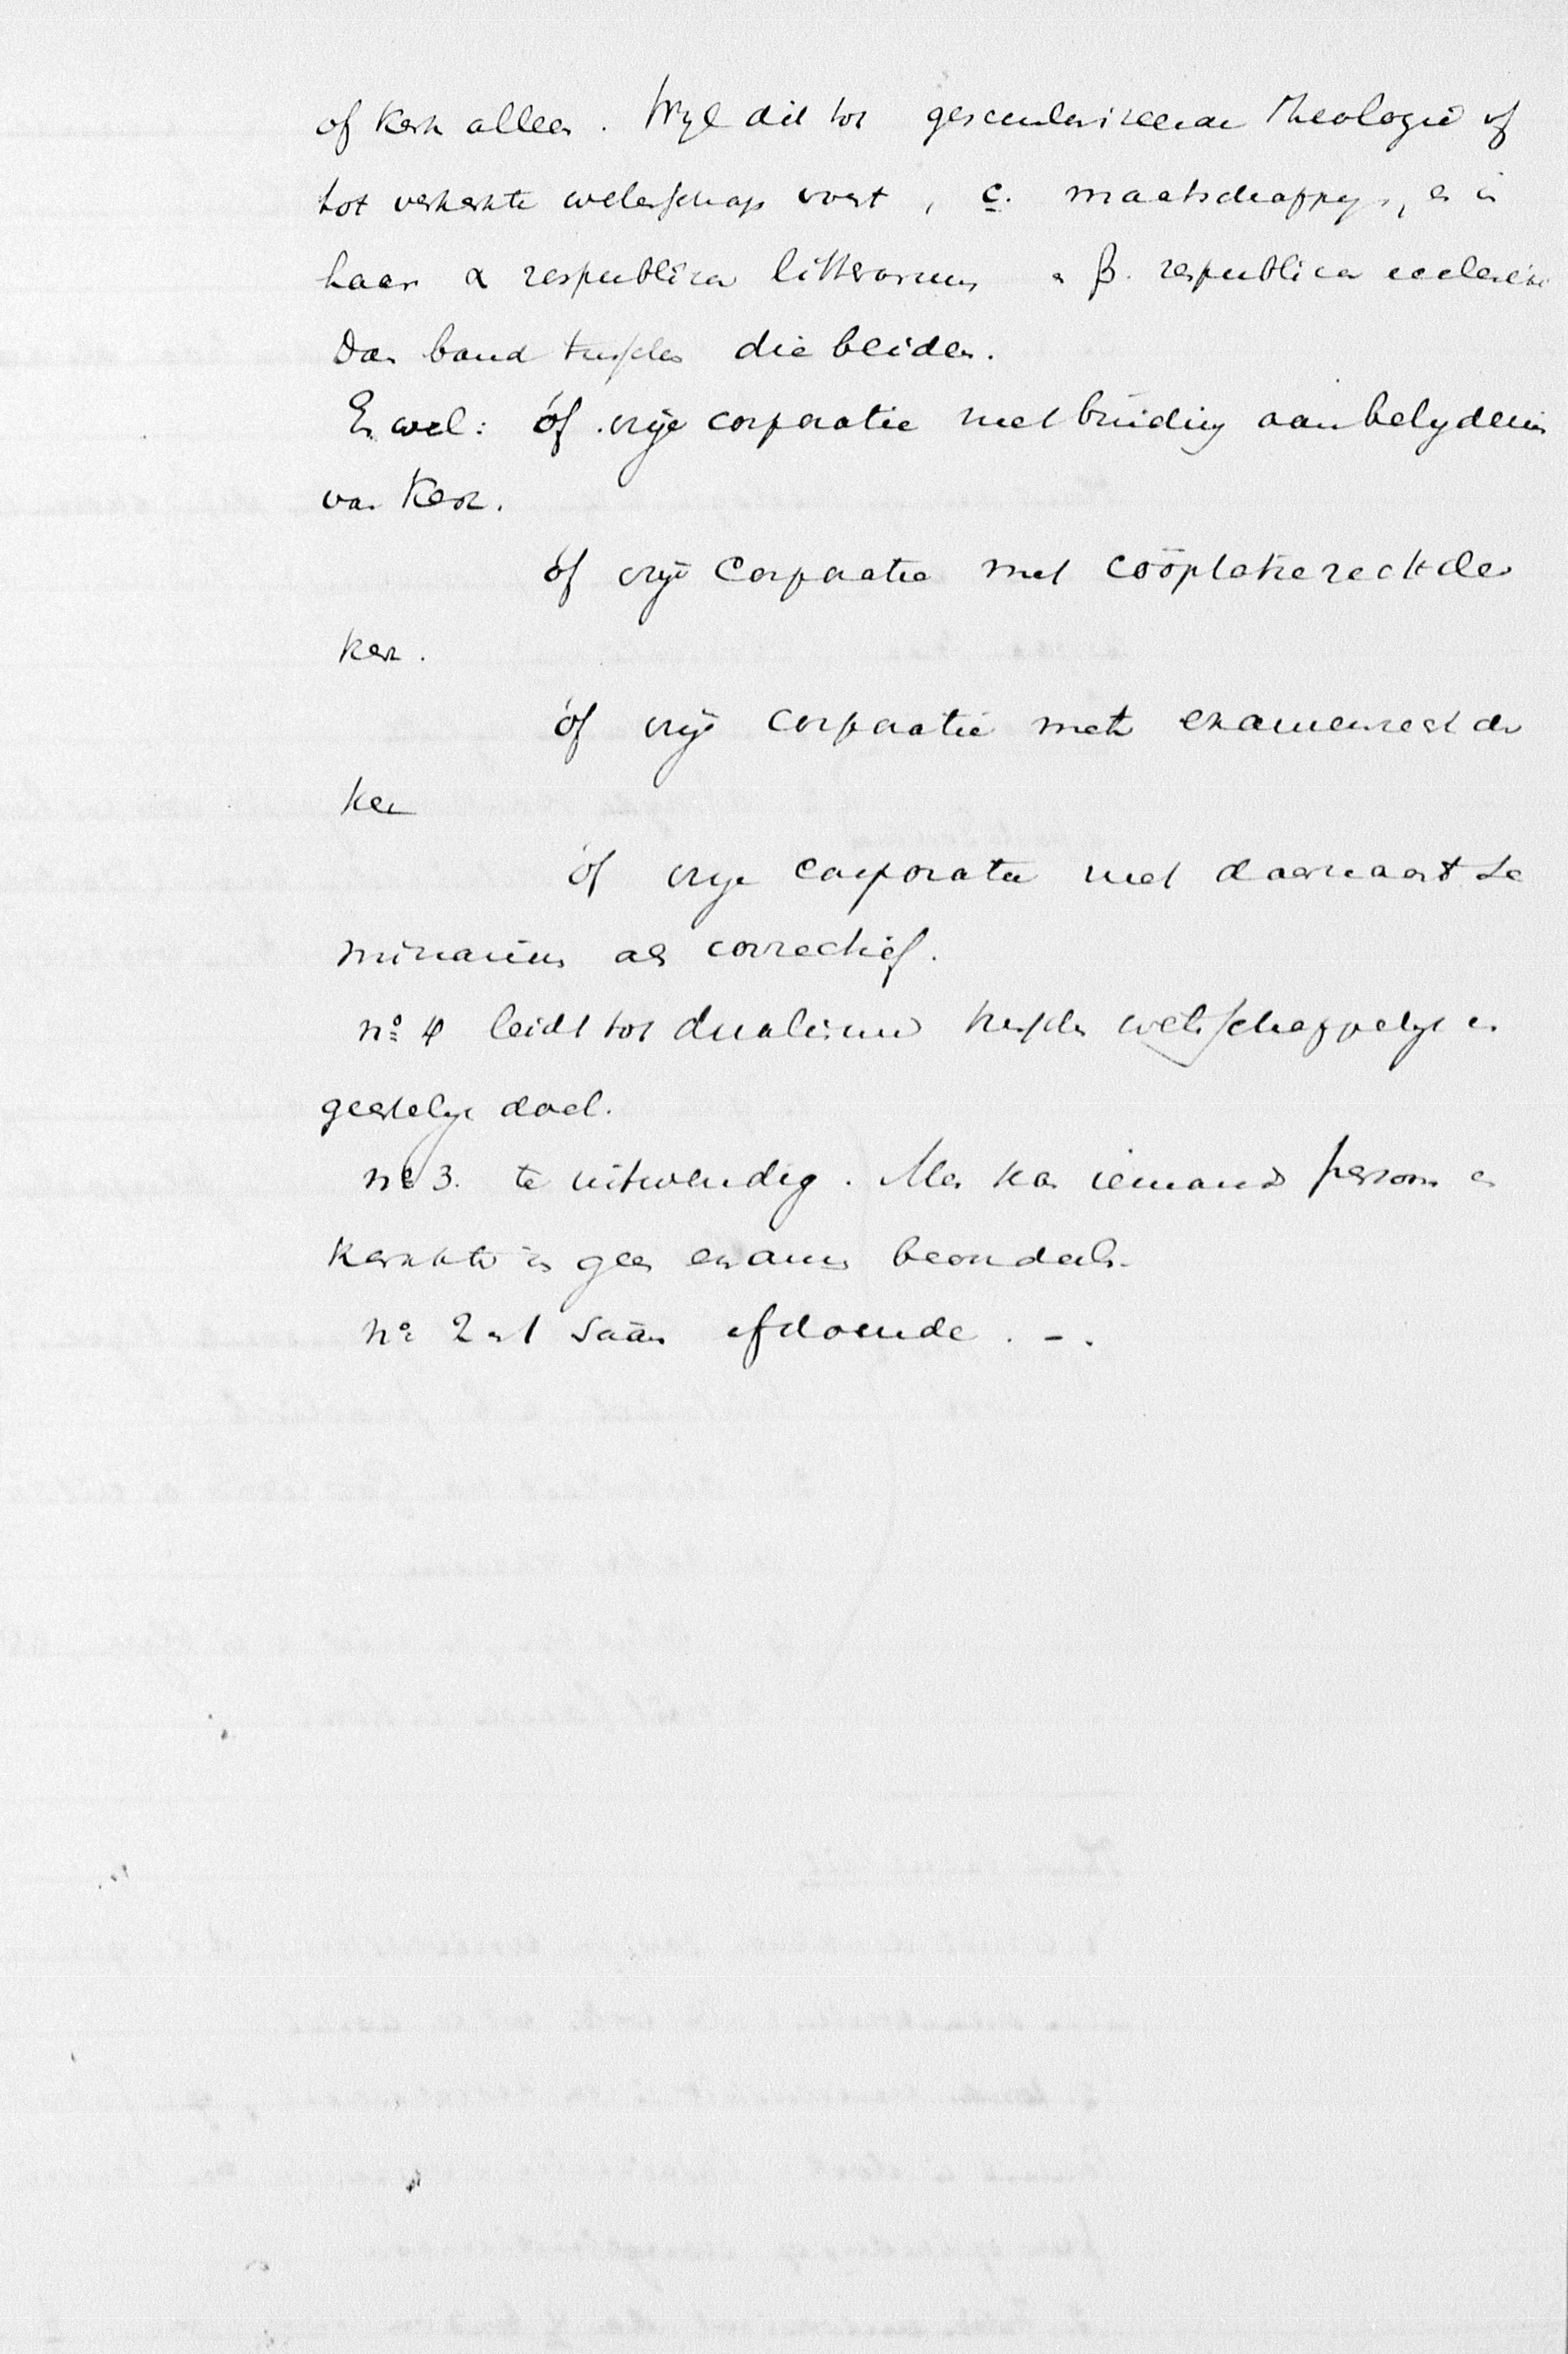 of Kerk alleen. Wyl dit tot geseculariseerde Theologie of
tot verkerkte wetenschap voert, c. maatschappy, en in
haar α respublica litterarum en β. respublica ecclesiae
Dan band tusschen die beiden.
En wel: óf vrije corporatie met binding aan belydenis
van Kerk.
óf vrije Corporatie met coöptatierecht der
kerk.
óf vrije corporatie met examenrecht der
kerk
óf vrye corporatie met daarnaast se
minarium als correctief.
no 4 leidt tot dualisme tusschen wetenschappelyk en
geestelyk doel.
no 3. te uitwendig. Men kan iemands persoon en
karakter in geen examen beoordeelen.
no 2 en 1 saam afdoende. -.